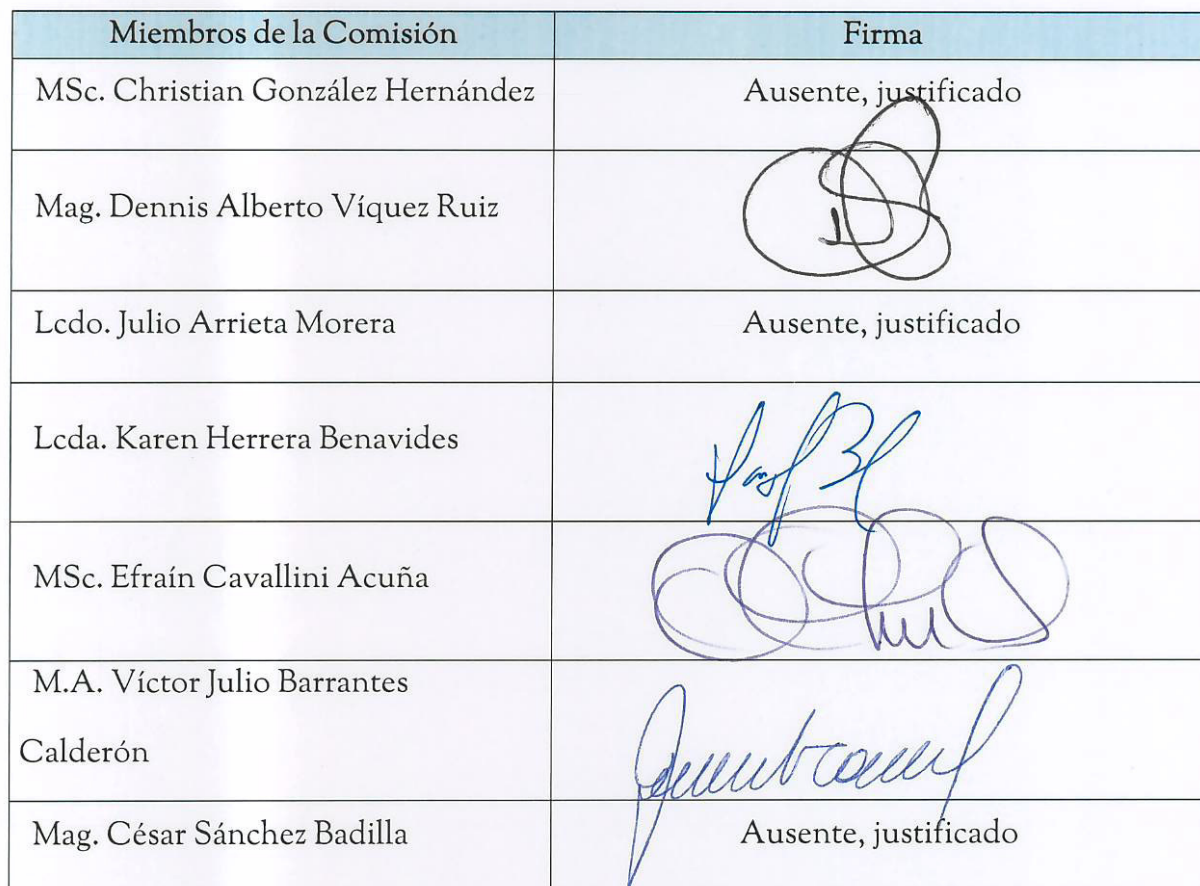 Miembros de la Comisión Firma
MSc. Christian González Hernández Ausente, justificado
Mag. Dennis Alberto Víquez Ruiz
Lcdo. Julio Arrieta Morera Ausente, justificado
Lcda. Karen Herrera Benavides
MSc. Efraín Cavallini Acuña
M.A. Víctor Julio Barrantes
Calderón
Mag. César Sánchez Badilla Ausente, justificado